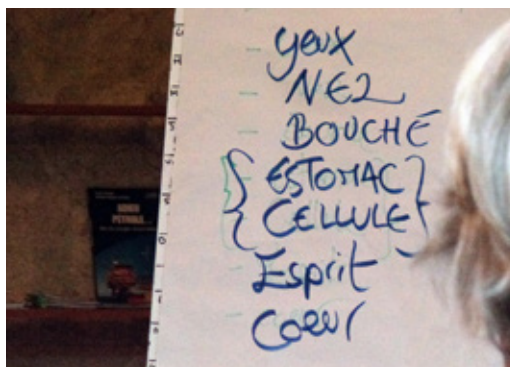 yeux
NEZ
BOUCHE
ESTOMAC
CELLULE
Esprit
Coeur